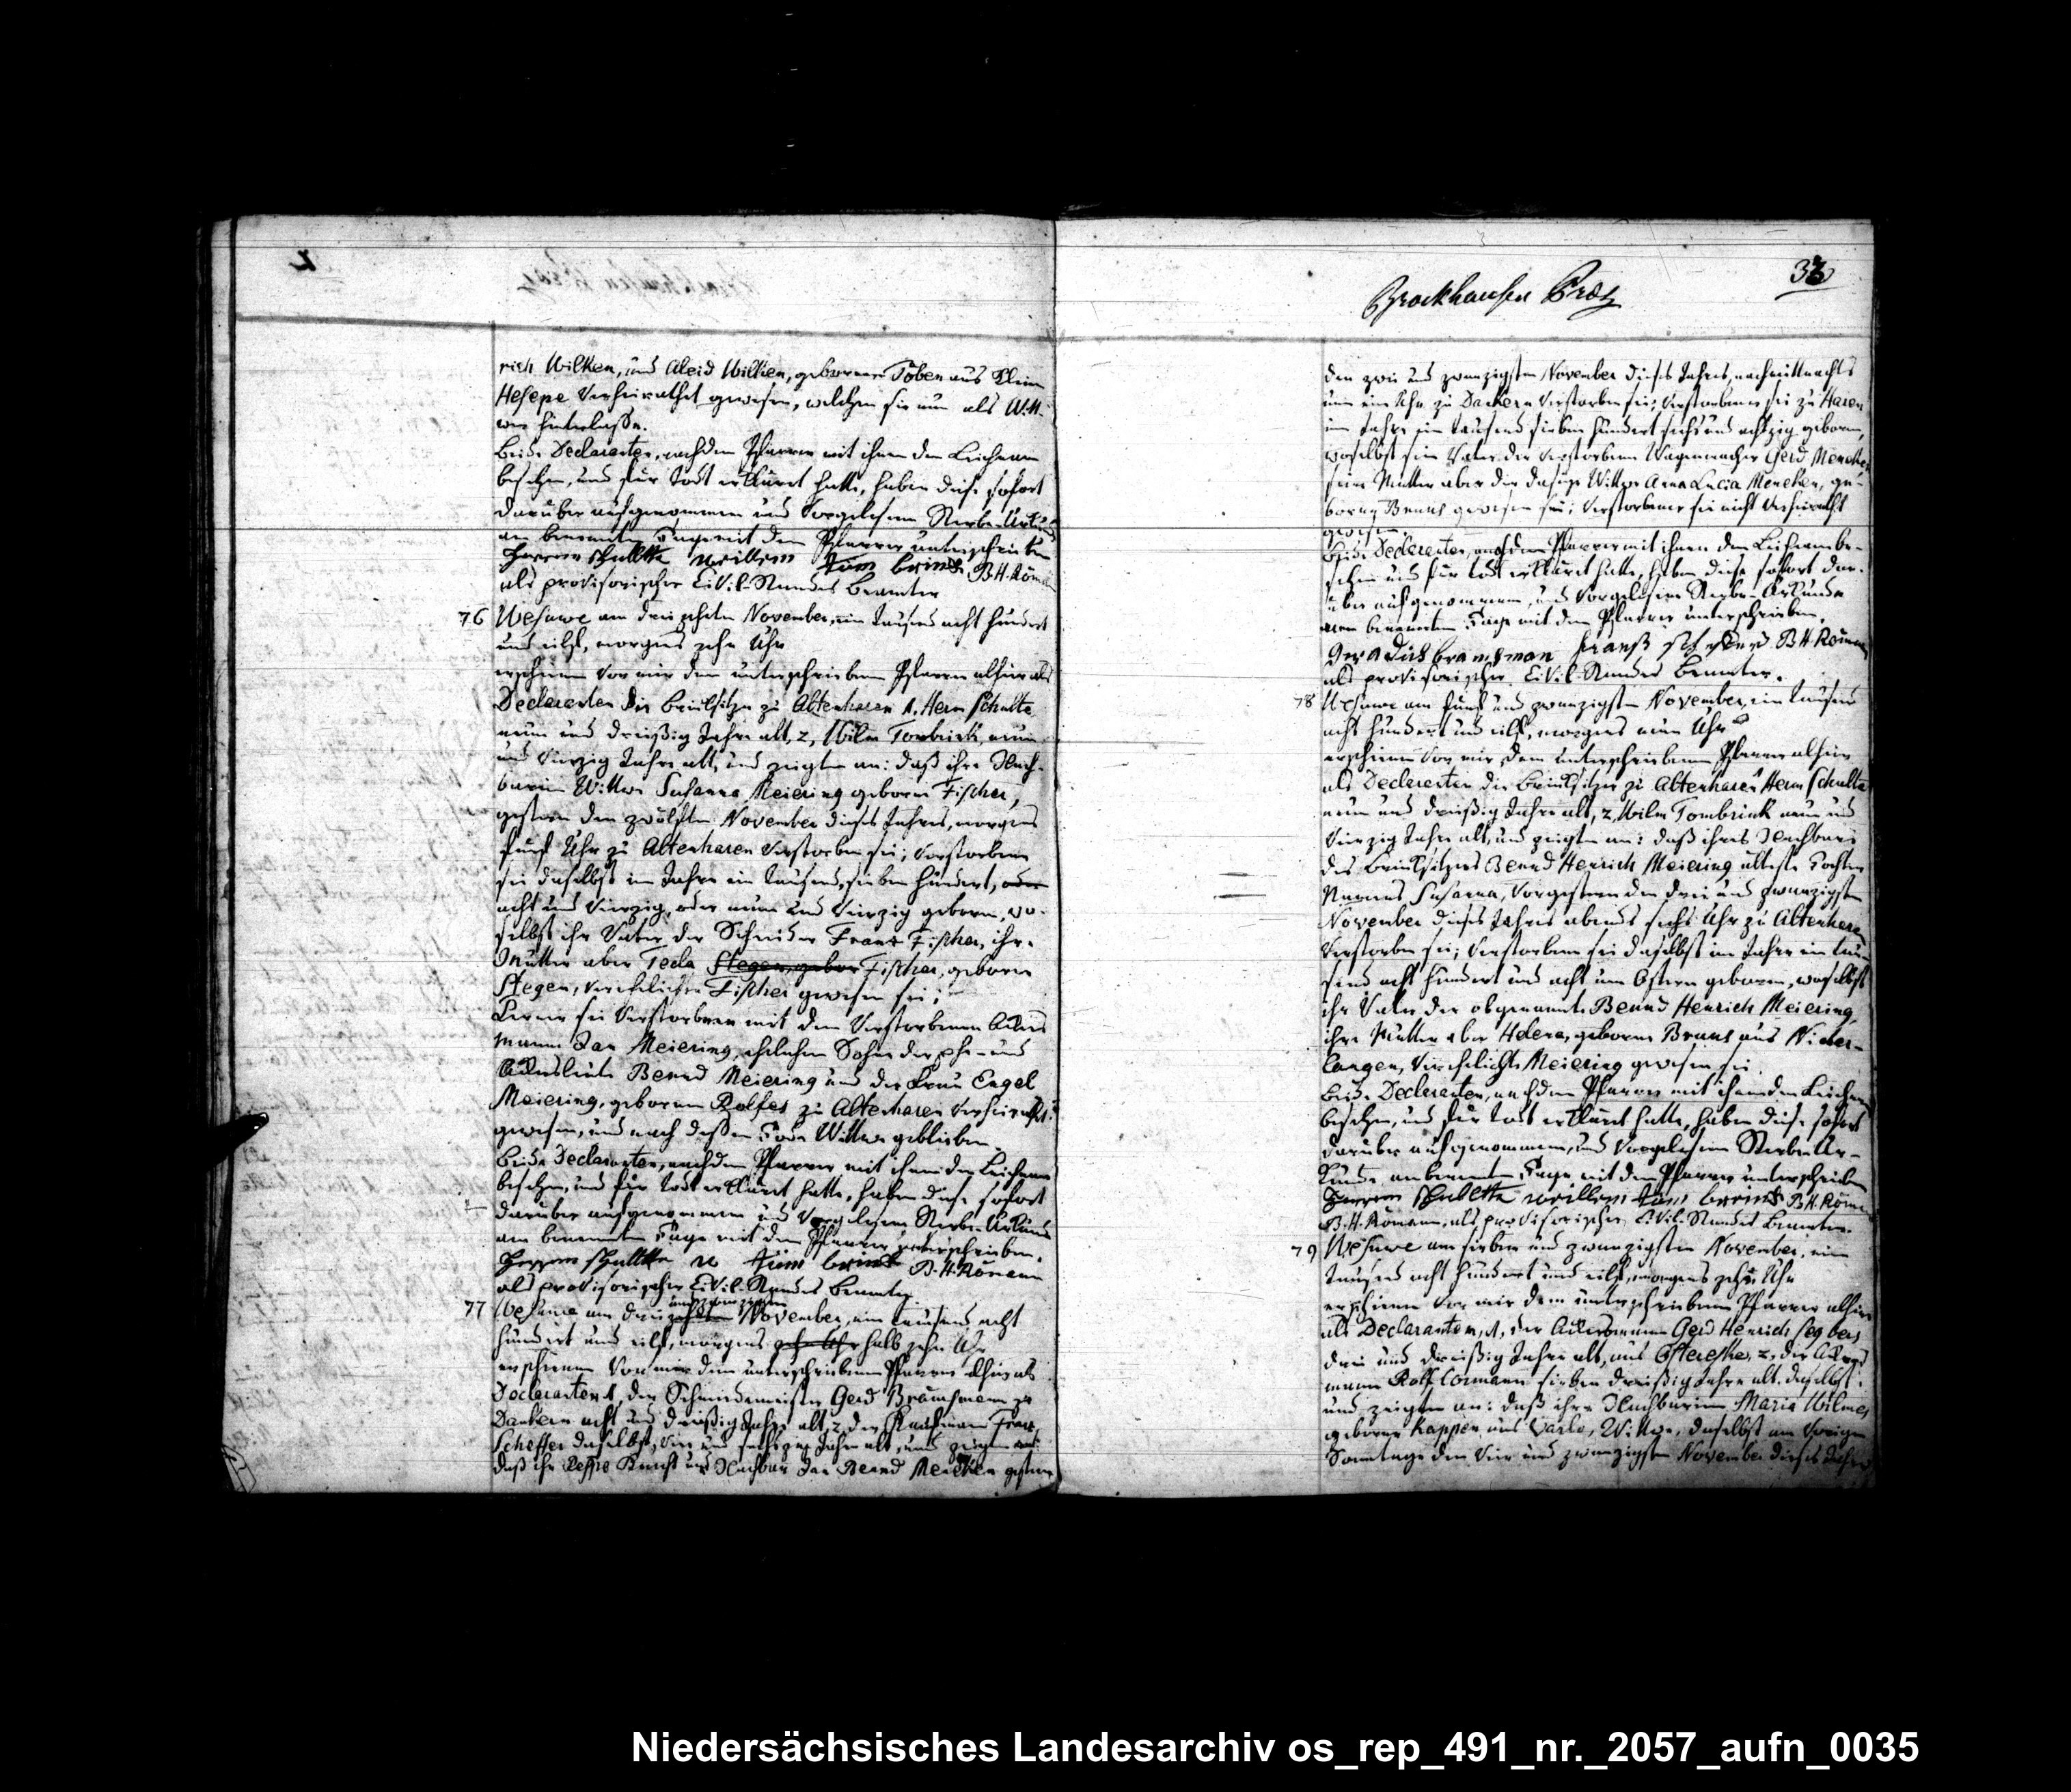 rich Wilken, und Aleid Wilken, geborene Toben aus Klein
Hesepe verheirathet gewesen, welchen sie nun als Witt-
wer hinterlasse.
Beide Declaranten, nachdem Pfarrer mit ihnen den Leichnam
besehen, und für todt erklärt hatte, haben diese sofort
darüber aufgenommene und vorgelesene Sterbe-Urkunde
am benannten Tage mit dem Pfarrer unterschrieben
Herrm Schullte willem tum brink B.H. Römann
als provisorischer Civil-Standes Beamter
76 Wesuwe am dreizehnten November, ein tausend acht hundert
und eilf, morgens zehn Uhr
erschienen vor mir dem unterschriebenen Pfarrer alhier als
Declaranten die Brinksitzer zu Altenharen 1, Herm Schulte
neun und dreißig Jahre alt, 2, Wilm Tombrink, neun
und vierzig Jahre alt, und zeigten an: daß ihre Nach-
barin Wittwe Susanna Meiering geborne Fischer,
gestern den zwölften November dieses Jahres, morgens
fünf Uhr zu Altenharen verstorben sei; Verstorbene
sei daselbst im Jahre ein tausend, sieben hundert, oder
acht und vierzig, oder neun und vierzig geboren, wo-
selbst ihr Vater der Schneider Franz Fischer, ihre
Mutter aber Tecla Stegen, gebor Fischer, geborne
Stegen, verehelichte Fischer gewesen sei;
Ferner sei Verstorbene mit dem verstorbenen Ackers
mann Jan Meiering, ehelichen Sohn der Ehe- und
Ackersleute Bernd Meiering und der Frau Engel
Meiering, geborene Rolfes zu Altenharen verheirathet
gewesen, und nach dessen Tode Wittwe geblieben.
Beide Declaranten, nachdem Pfarrer mit ihnen den Leichnam
besehen, und für todt erklärt hatte, haben diese sofort
darüber aufgenommene und vorgelesene Sterbe-Urkunde
am benannten Tage mit dem Pfarrer unterschrieben.
Herrm Schullte w tum brink B.H. Römann
als provisorischer Civil-Standes Beamter
und zwanzigsten
77 Wesuwe am dreizehnten November, ein tausend acht
hundert und eilf, morgens zehn Uhr halb zehn Uhr
erschienen vor mir dem unterschriebenen Pfarrer alhier als
Declaranten 1, der Schneidemeister Gerd Bramsmann zu
Dankern acht und dreißig Jahre alt, 2, der Kaufmann Franz
Scheffer daselbst, vier und sechszig Jahre alt, und zeigten an:
daß ihr Knecht und Nachbar Jan Bernd Mencken gestern
33
Brockhausen Präs
den zwei und zwanzigsten November dieses Jahres, nachmittnachts
um ein Uhr zu Dankern verstorben sei; Verstorbener sei zu Haren
im Jahre ein tausend sieben hundert sechs und achtzig geboren,
woselbst sein Vater der verstorbene Wagenmacher Gerd Mencken
seine Mutter aber die dasige Wittwe Anna Lucia Mencken, ge-
borne Benus gewesen sei; Verstorbener sei nicht verheirathet
gewesen.
Beide Declaranten, nachdem Pfarrer mit ihnen den Leichnam be-
sehen und für todt erklärt hatte, haben diese sofort dar-
über aufgenommene, und vorgelesene Sterbe-Urkunde
am benannten Tage mit dem Pfarrer unterschrieben.
Geradus bramsman franß scheffer B.H. Römann
als provisorischer Civil-Standes Beamter.
78 Wesuwe am fünf und zwanzigsten November, ein tausend
acht hundert und eilf, morgens neun Uhr
erschienen vor mir dem unterschriebenen Pfarrer alhier
als Declaranten die Brinksitzer zu Altenharen 1, Herm Schulte
neun und dreißig Jahre alt, 2, Wilm Tombrink neun und
vierzig Jahre alt, und zeigten an: daß ihres Nachbars
des Brinksitzers Bernd Henrich Meiering älteste Tochter
Namens Susanna, vorgestern den drei und zwanzigsten
November dieses Jahres abends sechs Uhr zu Altenharen
verstorben sei; Verstorbene sei daselbst im Jahre ein tau-
send acht hundert und acht um Ostern geboren, woselbst
ihr Vater der obgenannte Bernd Henrich Meiering,
ihre Mutter aber Helena, geborene Bruns aus Nieder-
langen, verehelichte Meiering gewesen sei.
Beide Declaranten, nachdem Pfarrer mit ihnen den Leichnam
besehen, und für todt erklärt hatte, haben diese sofort
darüber aufgenommene, und vorgelesene Sterbe Ur-
kunde am benannten Tage mit dem Pfarrer unterschrieben
Herrm Schullte willem tum brink B.H. Röma
B.H. Römann, als provisorischer Civil-Standes Beamter.
79 Wesuwe am sieben und zwanzigsten November, ein
tausend acht hundert und eilf, morgens zehn Uhr
erschienen vor mir dem unterschriebenen Pfarrer alhier
als Declaranten, 1, der Ackersmann Gerd Henrich Segbers
drei und dreißig Jahre alt, aus 2, der Ackers
mann Rolf Cormann sieben dreißig Jahre alt, daselbst.
und zeigten an: daß ihre Nachbarinn Maria Wilmes
geborne Kappen aus Varlo, Wittwe, daselbst am vorigen
Sonntage den vier und zwanzigsten November dieses Jahres
Niedersächsisches Landesarchiv os_rep_491_nr._2057_aufn_0035